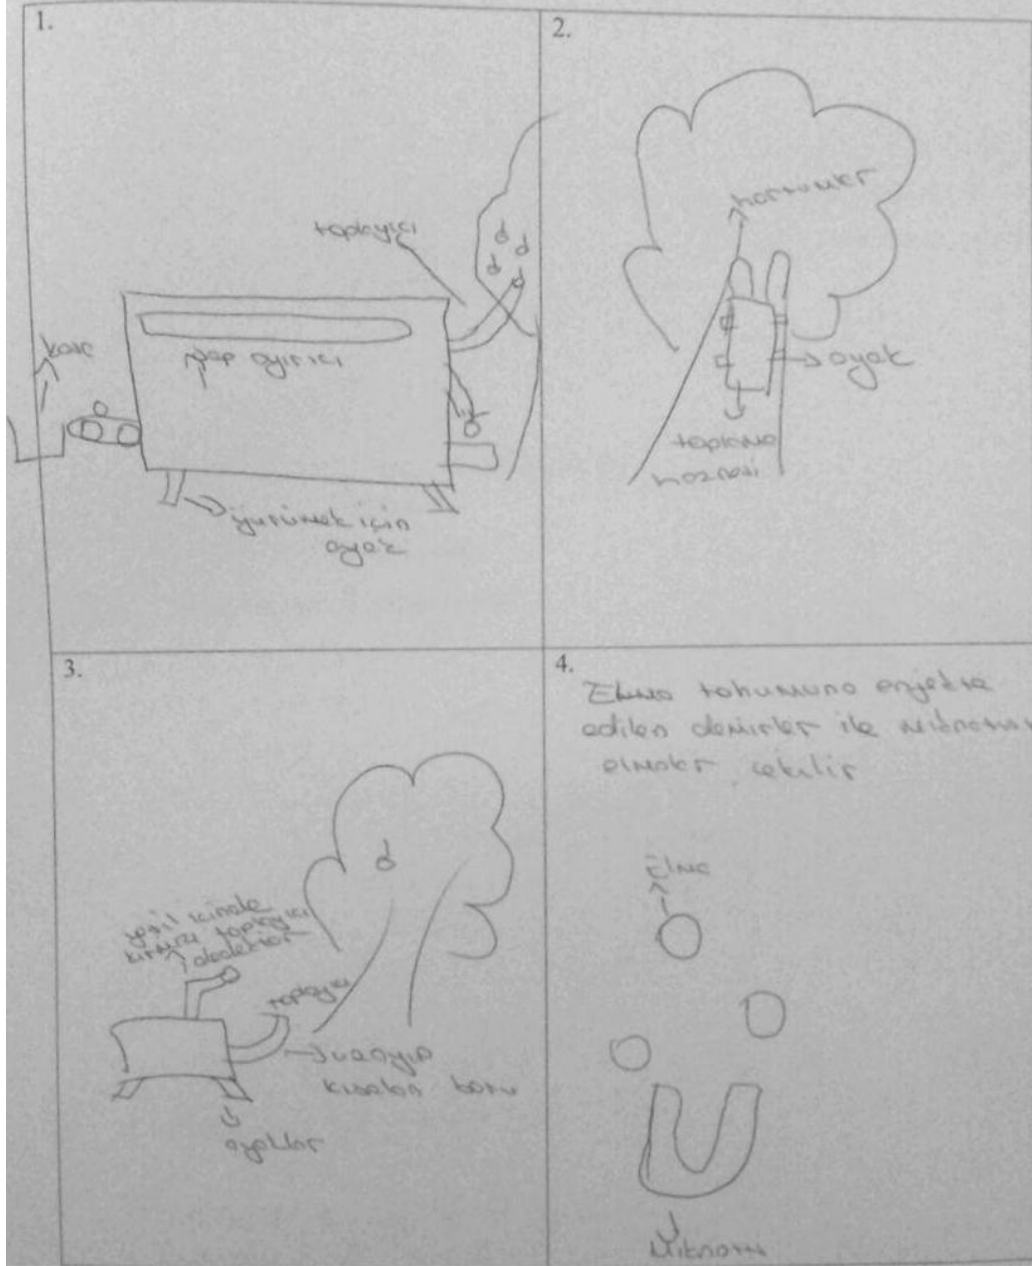 1.
toplayıcı
kasa
sap ayırıcı
yürümek için
ayak
2.
hortumlar
ayak
toplama
haznesi
3.
yeşil içinde
kırmızı toplayıcı
dedektör
toplayıcı
uzayıp
kısalan boru
ayaklar
4.
Elma tohumuna enjekte
edilen demirler ile mıknatısla
elmalar çekilir
Elma
Mıknatıs